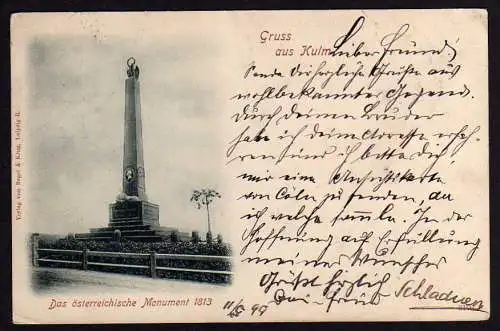 Gruss
aus Kulm
Lieber Freund!
Sende dir herzliche Grüße aus
wohlbekannter Gegend.
Durch deinen Bruder
hab ich deine Adresse erfah-
ren und ich bitte dich,
mir eine Ansichtskarte
von Cöln zu senden, da
ich welche sammle. In der
Hoffnung auf Erfüllung
meines Wunsches
Grüßt herzlich
dein Freund Schladnen
11/5 99
Das österreichische Monument 1813
Verlag von Regel & Krug, Leipzig-R.